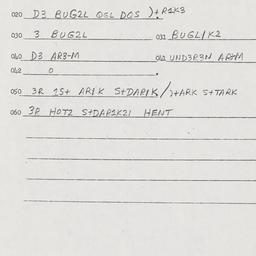 020 D3 BUG2L OEL DOS )+R1K3
030 3 BUG2L 031 BUGL/K2
040 D3 AR3-M 041 UND3R3N ARM
042 0
050 3R 1S+ AR1K S+DAR1K/)+ARK S+TARK
060 3R HOT2 S+DAR1K21 HENT